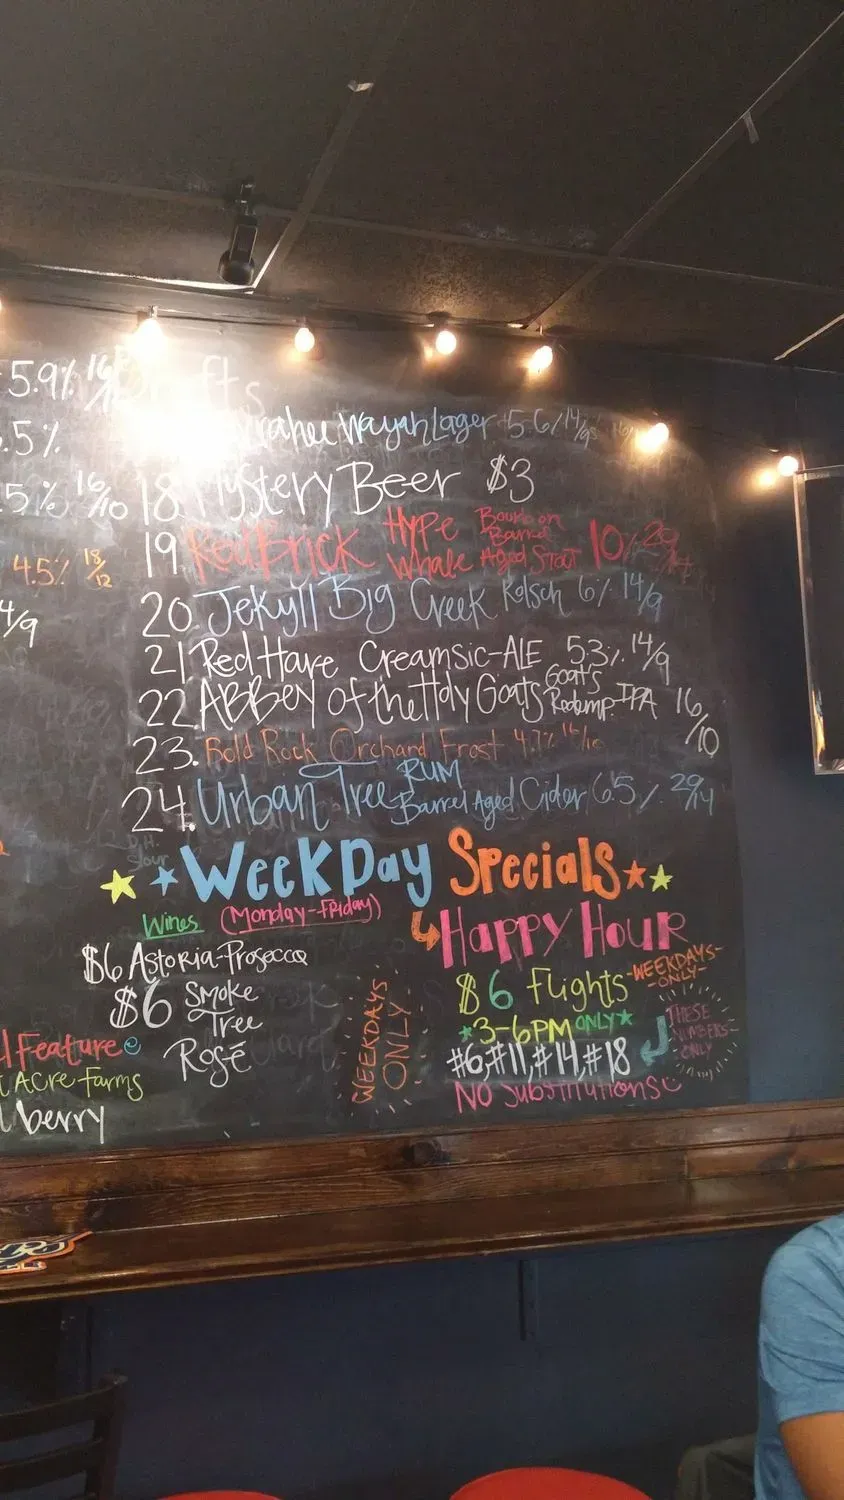 5.9% 16/10
.5%
5% 16/10
4.5% 18/12
4/9
Wayah Lager 5.6% 14/9
18 Mystery Beer $3
19 Red Brick Hype Whale Bourbon Barrel Aged Stout 10%
20. Jekyll Big Creek Kolsch 6% 14/9
21. Red Hare Creamsic-ALE 5.3% 14/9
22. Abbey of the Holy Goats Goat's Redemp. IPA 16/10
23. Bold Rock Orchard Frost 4.7% 16/10
24. Urban Tree Rum Barrel Aged Cider 6.5% 29/14
Weekday Specials
Wines (Monday-Friday)
Happy Hour
$6 Astoria-Prosecco
$6 Smoke Tree Rosé
WEEKDAYS ONLY
$6 Flights -WEEKDAYS-ONLY-
3-6PM ONLY
THESE NUMBERS ONLY
#6, #11, #14, #18
NO Substitutions
Feature
Acre Farms
berry